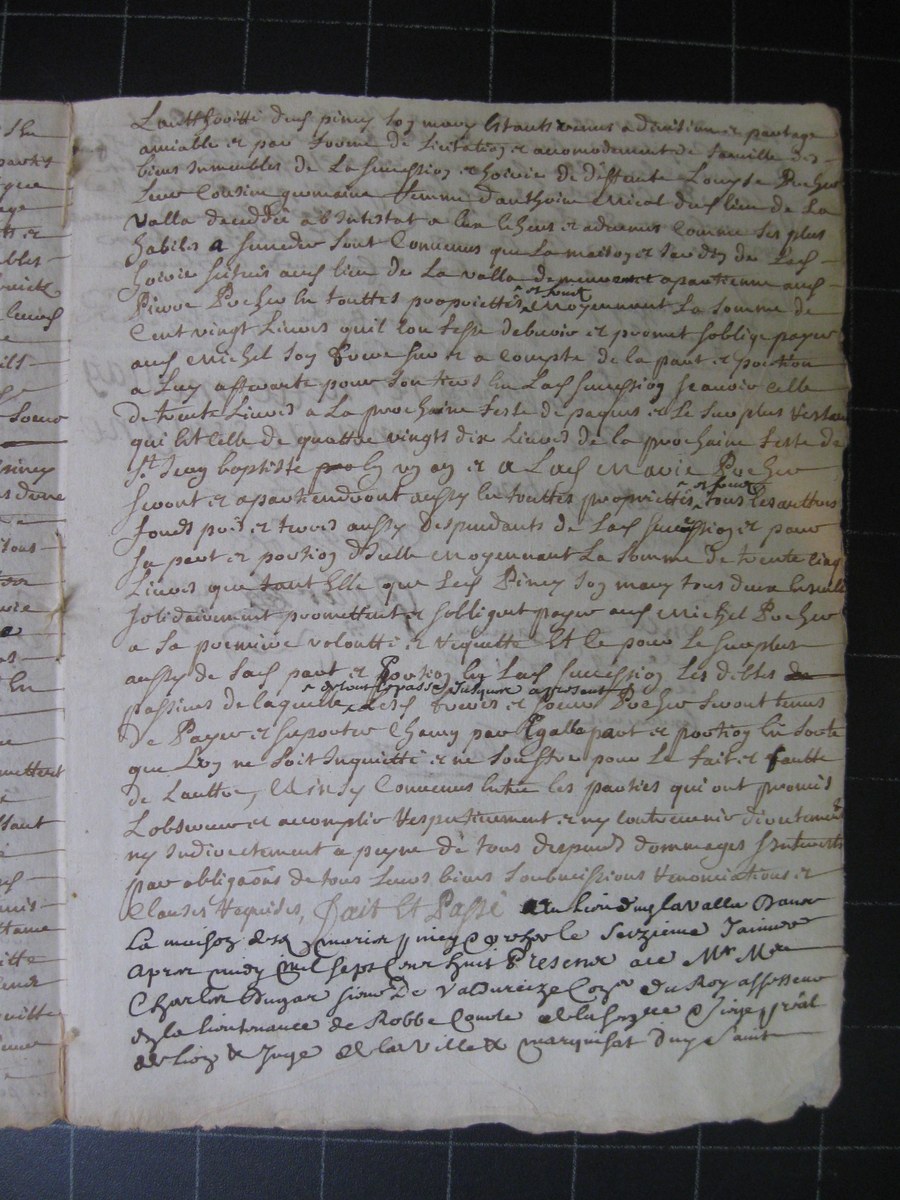 Lautthoritté dud piney son mary Estants venus a division et partage
amiable et par forme de licitation et acomodement de famille des
biens Immeubles de La Succession et hoirie de deffunte Louyse Pocher
Leur Cousine germaine femme d'anthoine Micol dud lieu de La
Valla deceddée ab Intestat a eux Escheus et advenus Comme ses plus
habiles a succeder sont Convenus que La maison et Jardin de Lad
hoirie scitués aud lieu de La valla apartienne aud
Pierre Pocher En touttes proprietés et fonds moyennant La somme de
Cent vingt Livres quil Confesse debvoir et promet soblige payer
aud Michel son frere sur et a Compte de la part et portion
a Luy afferante pour son tiers En Lad succession scavoir celle
de trente Livres a La prochaine feste de paques et Le surplus restant
qui Est Celle de quattre vingts dix Livres de la prochaine feste de
St Jean baptiste En un an et a Lad Marie Pocher
seront et apartiendront aussy En touttes proprietés et fonds tous Les auttres
fonds prés et terres aussy despendants de Lad succession et pour
sa part et portion d'Icelle moyennant La somme de trente cinq
Livres que tant Elle que Led Piney son mary tous deux Ensemble
solidairement promettent et sobligent payer aud Michel Pocher
a sa premiere volontté et requitte Et Ce pour Le surplus
aussy de Lad part et Portion En Lad succession Les debtes
passives de laquelle de tout le passé Jusques a present Lesd freres et soeur Pocher seront tenus
de Payer et suporter Chacun par Egalle part et portion En sorte
que L'un ne soit Inquietté et ne souffre pour Le fait et fautte
de L'auttre, Ainsy Convenus Entre les parties qui ont promis
Lobserver et acomplir respectivement et ny Contrevenir directement
ny Indirectement a peyne de tous despends dommages Interests
par obligaons de tous Leurs biens soubmissions renonciations et
Clauses requises, Fait Et Passé au lieu de lavalla Dans
La maison desd maries piney Pocher le seizieme Janvier
apres midy mil sept Cent huit Presence de Mr Me
Charles Dugas sieur De Valdureize Conr du Roy assesseur
en la lieutenance de Robbe Courte de la senechee & siege pnal
de lion & Juge de la Ville & marquisat de Saint